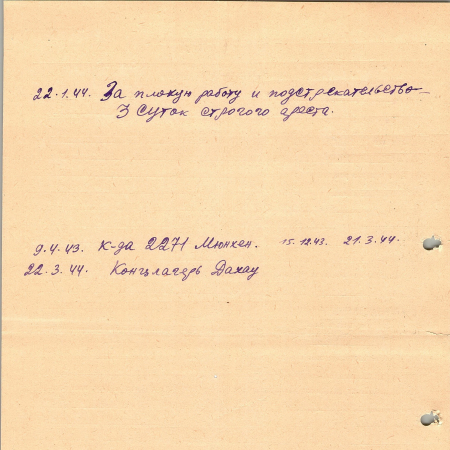 22.1.44. За плохую работу и подстрекательство
3 суток строгого ареста.
9.4.43. К-да 2271 Мюнхен. 15.12.43. 21.3.44.
22.3.44. Концлагерь Дахау